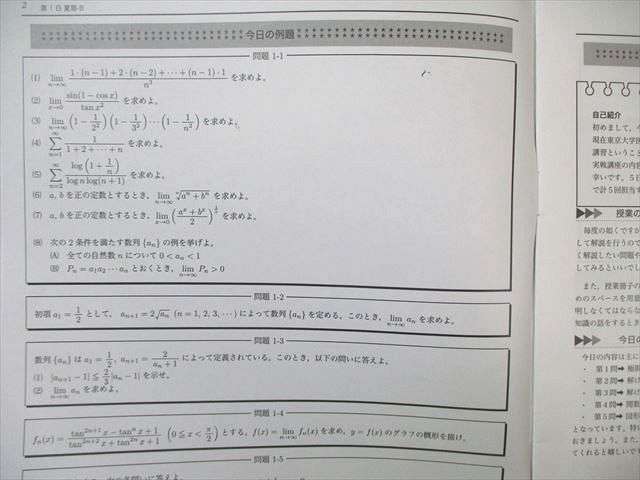 2 第1日 夏期-B
今日の例題
問題 1-1
(1) lim_{n→∞} \frac{1·(n−1)+2·(n−2)+···+(n−1)·1}{n^3} を求めよ。
(2) lim_{x→0} \frac{sin(1−cos x)}{tan x^2} を求めよ。
(3) lim_{n→∞} (1−\frac{1}{2^2})(1−\frac{1}{3^2})···(1−\frac{1}{n^2}) を求めよ。
(4) ∑_{n=1}^{∞} \frac{1}{1+2+···+n} を求めよ。
(5) ∑_{n=2}^{∞} \frac{log(1+\frac{1}{n})}{log n log(n+1)} を求めよ。
(6) a, b を正の定数とするとき, lim_{n→∞} \sqrt[n]{a^n+b^n} を求めよ。
(7) a, b を正の定数とするとき, lim_{x→0} (\frac{a^x+b^x}{2})^{\frac{1}{x}} を求めよ。
(8) 次の2条件を満たす数列 {a_n} の例を挙げよ。
(A) 全ての自然数 n について 0 < a_n < 1
(B) P_n = a_1a_2···a_n とおくとき, lim_{n→∞} P_n > 0
問題 1-2
初項 a_1 = \frac{1}{2} として, a_{n+1} = 2\sqrt{a_n} (n = 1, 2, 3, ···) によって数列 {a_n} を定める。このとき, lim_{n→∞} a_n を求めよ。
問題 1-3
数列 {a_n} は a_1 = \frac{1}{2}, a_{n+1} = \frac{2}{a_n+1} によって定義されている。このとき, 以下の問いに答えよ。
(1) |a_{n+1}−1| ≦ \frac{2}{3}|a_n−1| を示せ。
(2) lim_{n→∞} a_n を求めよ。
問題 1-4
f_n(x) = \frac{tan^{2n+1}x − tan^n x + 1}{tan^{2n+2}x + tan^{2n}x + 1} (0 ≦ x < \frac{π}{2}) とする, f(x) = lim_{n→∞} f_n(x) を求め, y = f(x) のグラフの概形を描け。
問題 1-5
自己紹介
初めまして,
現在東京大学医
講習ということ
実戦講座の内容
幸いです。5日
で計5回担当す
授業の
毎度の如くですが
して解説を行うので
く解説したい問題や
してみるといいでし
また, 授業冊子の
めのスペースを用意
明しなくてはならな
知識の話をするとき
今日の
今日の内容は主に
・ 第1問➡ 極限
・ 第2問➡ 解け
・ 第3問➡ 解け
・ 第4問➡ 関数
・ 第5問➡ 図形
となっています。特に
おきましょう。また,
てくれると嬉しいです